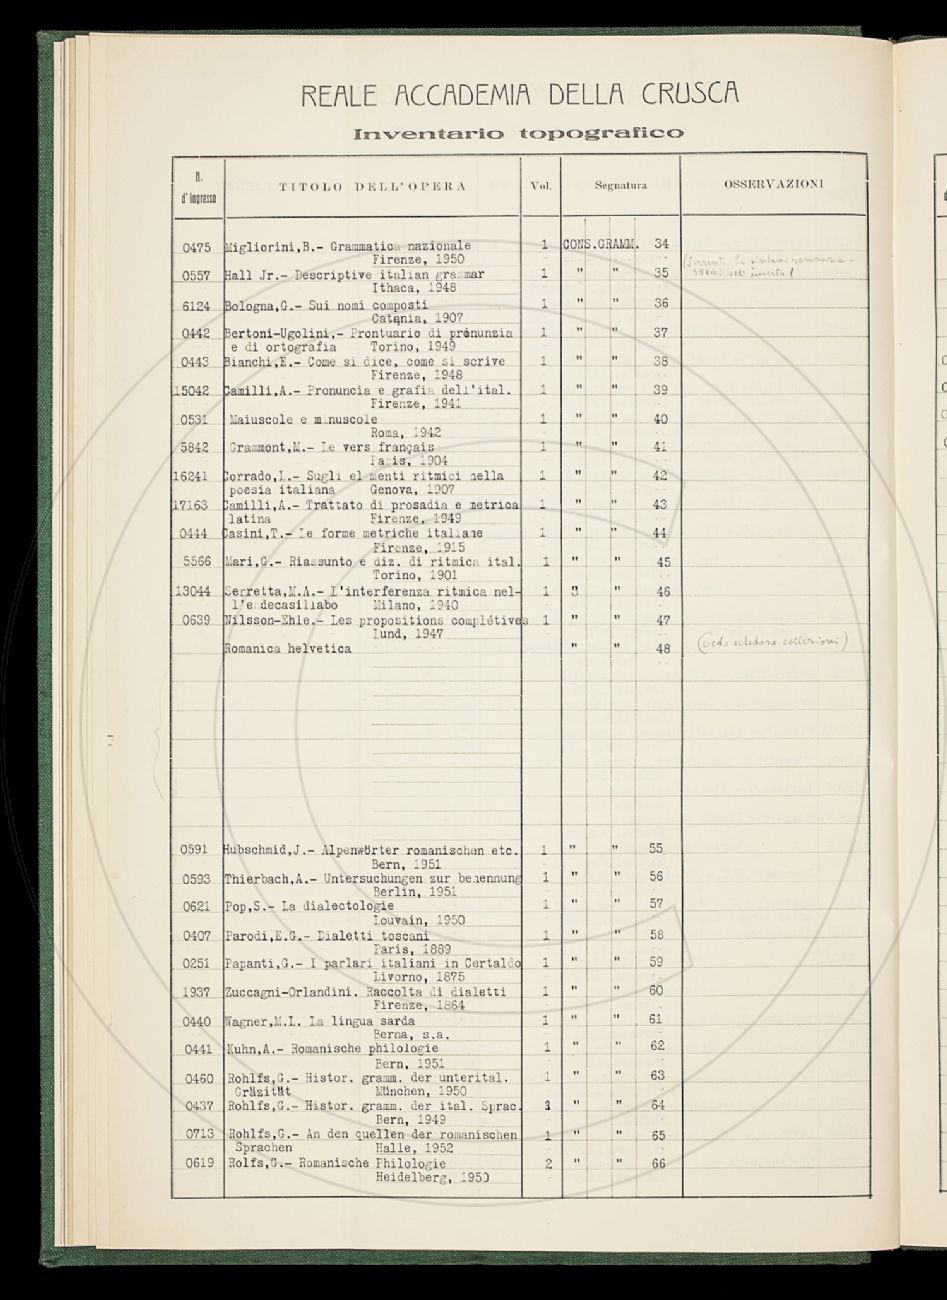 REALE ACCADEMIA DELLA CRUSCA
Inventario topografico
N. d'Ingresso TITOLO DELL'OPERA Vol. Segnatura OSSERVAZIONI
0475 Migliorini,B.- Grammatica nazionale 1 CONS.GRAMM. 34
Firenze, 1950
0557 Hall Jr.- Descriptive italian grammar 1 " " 35
Ithaca, 1948
6124 Bologna,G.- Sui nomi composti 1 " " 36
Catania, 1907
0442 Bertoni-Ugolini,- Prontuario di prònunzia 1 " " 37
e di ortografia Torino, 1949
0443 Bianchi,E.- Come si dice, come si scrive 1 " " 38
Firenze, 1948
15042 Camilli,A.- Pronuncia e grafia dell'ital. 1 " " 39
Firenze, 1941
0531 Maiuscole e minuscole 1 " " 40
Roma, 1942
5842 Grammont,M.- Le vers français 1 " " 41
Paris, 1904
16241 Corrado,L.- Sugli elementi ritmici nella 1 " " 42
poesia italiana Genova, 1907
17163 Camilli,A.- Trattato di prosadia e metrica 1 " " 43
latina Firenze, 1949
0444 Casini,T.- Le forme metriche italiane 1 " " 44
Firenze, 1915
5566 Mari,G.- Riassunto e diz. di ritmica ital. 1 " " 45
Torino, 1901
13044 Serretta,M.A.- L'interferenza ritmica nel- 1 " " 46
l'endecasillabo Milano, 1940
0639 Nilsson-Ehle,- Les propositions complétives 1 " " 47
Lund, 1947
Romanica helvetica " " 48 (vedi schedone collezioni)
0591 Hubschmid,J.- Alpenwörter romanischen etc. 1 " " 55
Bern, 1951
0593 Thierbach,A.- Untersuchungen zur benennung 1 " " 56
Berlin, 1951
0621 Pop,S.- La dialectologie 1 " " 57
Louvain, 1950
0407 Parodi,E.G.- Dialetti toscani 1 " " 58
Paris, 1889
0251 Papanti,G.- I parlari italiani in Certaldo 1 " " 59
Livorno, 1875
1937 Zuccagni-Orlandini. Raccolta di dialetti 1 " " 60
Firenze, 1864
0440 Wagner,M.L. La lingua sarda 1 " " 61
Berna, s.a.
0441 Kuhn,A.- Romanische philologie 1 " " 62
Bern, 1951
0460 Rohlfs,G.- Histor. gramm. der unterital. 1 " " 63
Gräzität München, 1950
0437 Rohlfs,G.- Histor. gramm. der ital. Sprac. 3 " " 64
Bern, 1949
0713 Rohlfs,G.- An den quellen der romanischen 1 " " 65
Sprachen Halle, 1952
0619 Rolfs,G.- Romanische Philologie 2 " " 66
Heidelberg, 1950